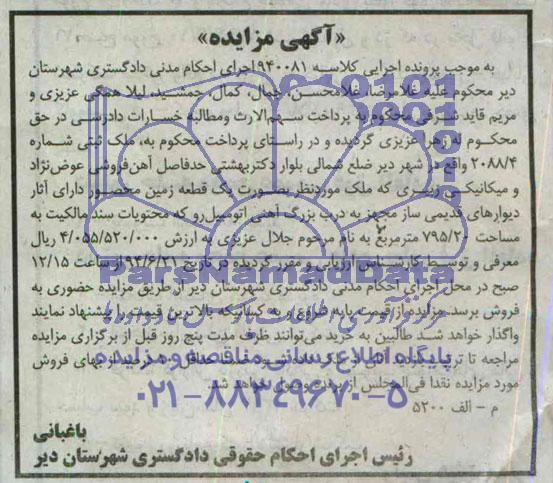 «آگهی مزایده»
به موجب پرونده اجرایی کلاسه ۹۴۰۰۸۱ اجرای احکام مدنی دادگستری شهرستان
دیر محکوم علیه غلامرضا، غلامحسن، جمال، کمال، جمشید، لیلا همگی عزیزی و
مریم قاید شرفی محکوم به پرداخت سهم‌الارث ومطالبه خسارات دادرسی در حق
محکوم له زهرا عزیزی گردیده و در راستای پرداخت محکوم به، ملک ثبتی شماره
۲۰۸۸/۴ واقع در شهر دیر ضلع شمالی بلوار دکتربهشتی حدفاصل آهن‌فروشی عوض‌نژاد
و میکانیکی زبری که ملک موردنظر بصورت یک قطعه زمین محصور دارای آثار
دیوارهای قدیمی ساز مجهز به درب بزرگ آهنی اتومبیل‌رو که محتویات سند مالکیت به
مساحت ۷۹۵/۲۰ مترمربع به نام مرحوم جلال عزیزی به ارزش ۴/۰۵۵/۵۲۰/۰۰۰ ریال
معرفی و توسط کارشناس ارزیابی و مقرر گردیده در تاریخ ۹۴/۶/۲۱ از ساعت ۱۲/۱۵
صبح در محل اجرای احکام مدنی دادگستری شهرستان دیر از طریق مزایده حضوری به
فروش برسد. مزایده از قیمت پایه شروع و به کسانیکه بالاترین قیمت را پیشنهاد نمایند
واگذار خواهد شد. طالبین به خرید می‌توانند ظرف مدت پنج روز قبل از برگزاری مزایده
مراجعه تا ترتیب بازدید آنان از ملک داده شود. ضمنا حداقل بهای فروش
مورد مزایده نقدا فی‌المجلس از برنده وصول خواهد شد.
م - الف ۵۲۰۰
باغبانی
رئیس اجرای احکام حقوقی دادگستری شهرستان دیر
ParsNamadData
پایگاه اطلاع رسانی مناقصه و مزایده
۰۲۱-۸۸۳۴۹۶۷۰-۵